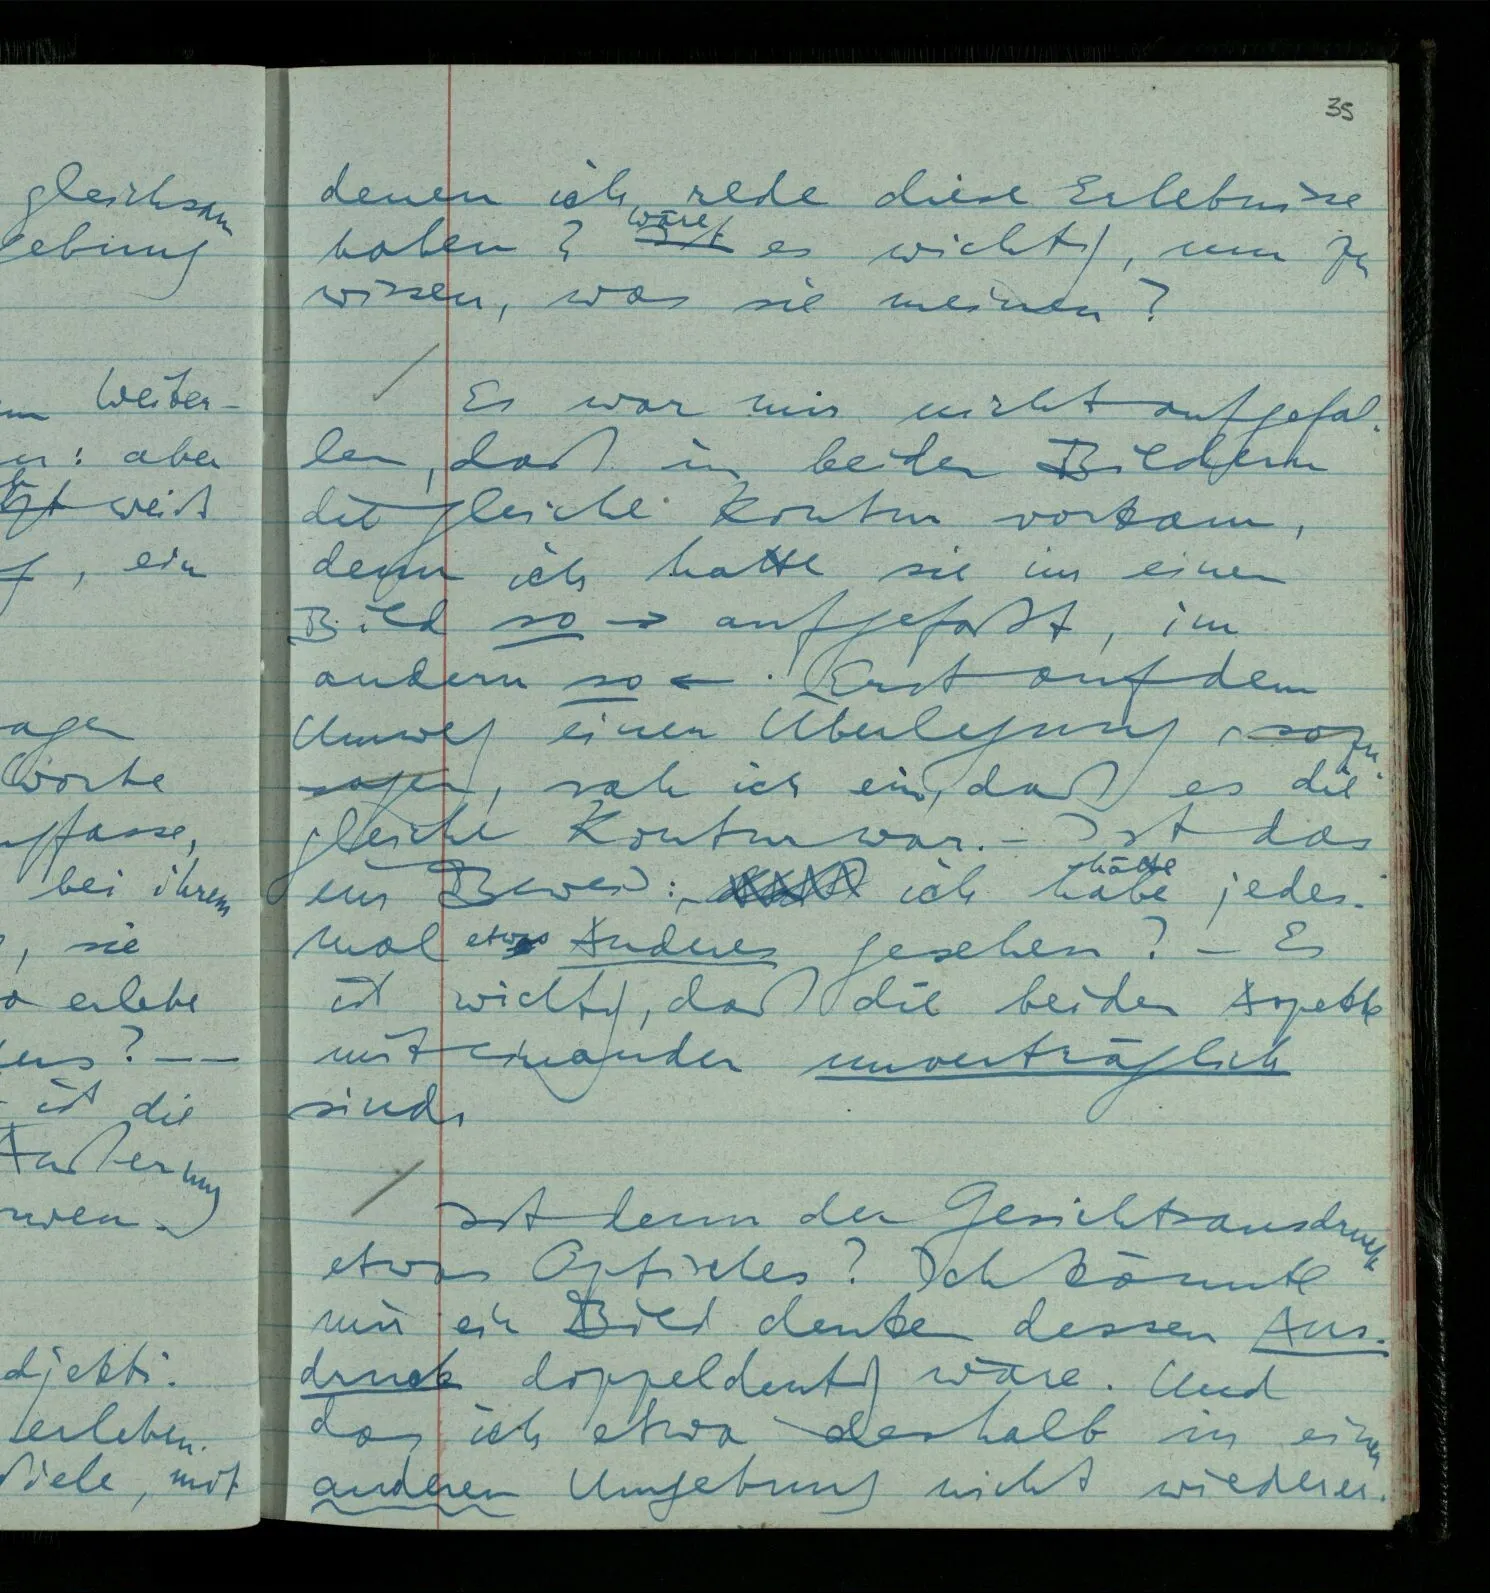 gleichsam
gebung
Weiter-
: aber
weiß
, ein
agen
Worte
uffasse,
bei ihrem
, sie
erlebe
? – –
ist die
Äußerung
djekti-
erleben.
Viele, mit
35
denen ich rede diese Erlebnisse
haben? wäre es wichtig, um zu
wissen, was sie meinen?
Es war mir nicht aufgefal-
len, daß in beiden Bildern
die gleiche Kontur vorkam,
denn ich hatte sie im einen
Bild so → aufgefaßt, im
andern so ←. Erst auf dem
Umweg einer Überlegung, sozu-
sagen, sah ich ein, daß es die
gleiche Kontur war. – Ist das
ein Beweis: ich habe hätte jedes-
mal etwas Anderes gesehen? – Es
ist wichtig, daß die beiden Aspekte
mit einander unverträglich
sind.
Ist denn der Gesichtsausdruck
etwas Optisches? Ich könnte
mir ein Bild denken dessen Aus-
druck doppeldeutig wäre. Und
das ich etwa deshalb in einer
anderen Umgebung nicht wiederer-